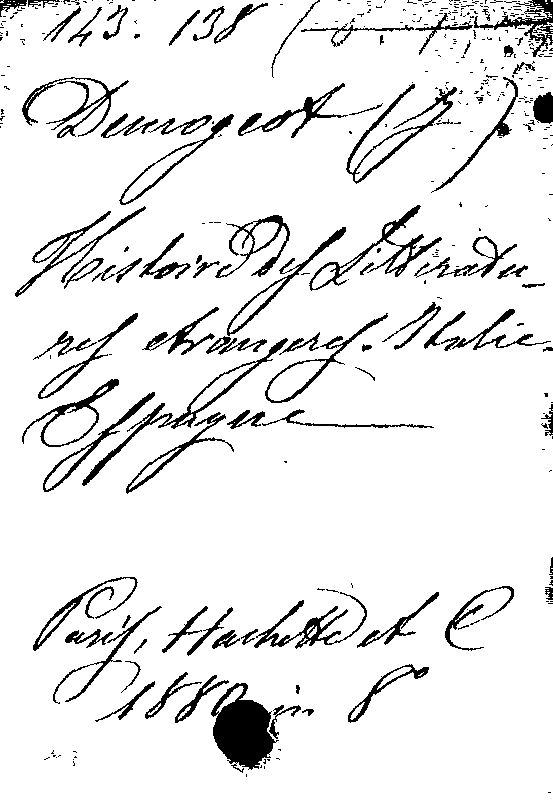 143. 138
Demogeot (J)
Histoire des Litteratu-
res etrangeres. Italie.
Espagne
Paris, Hachette et C
1880 in 8°